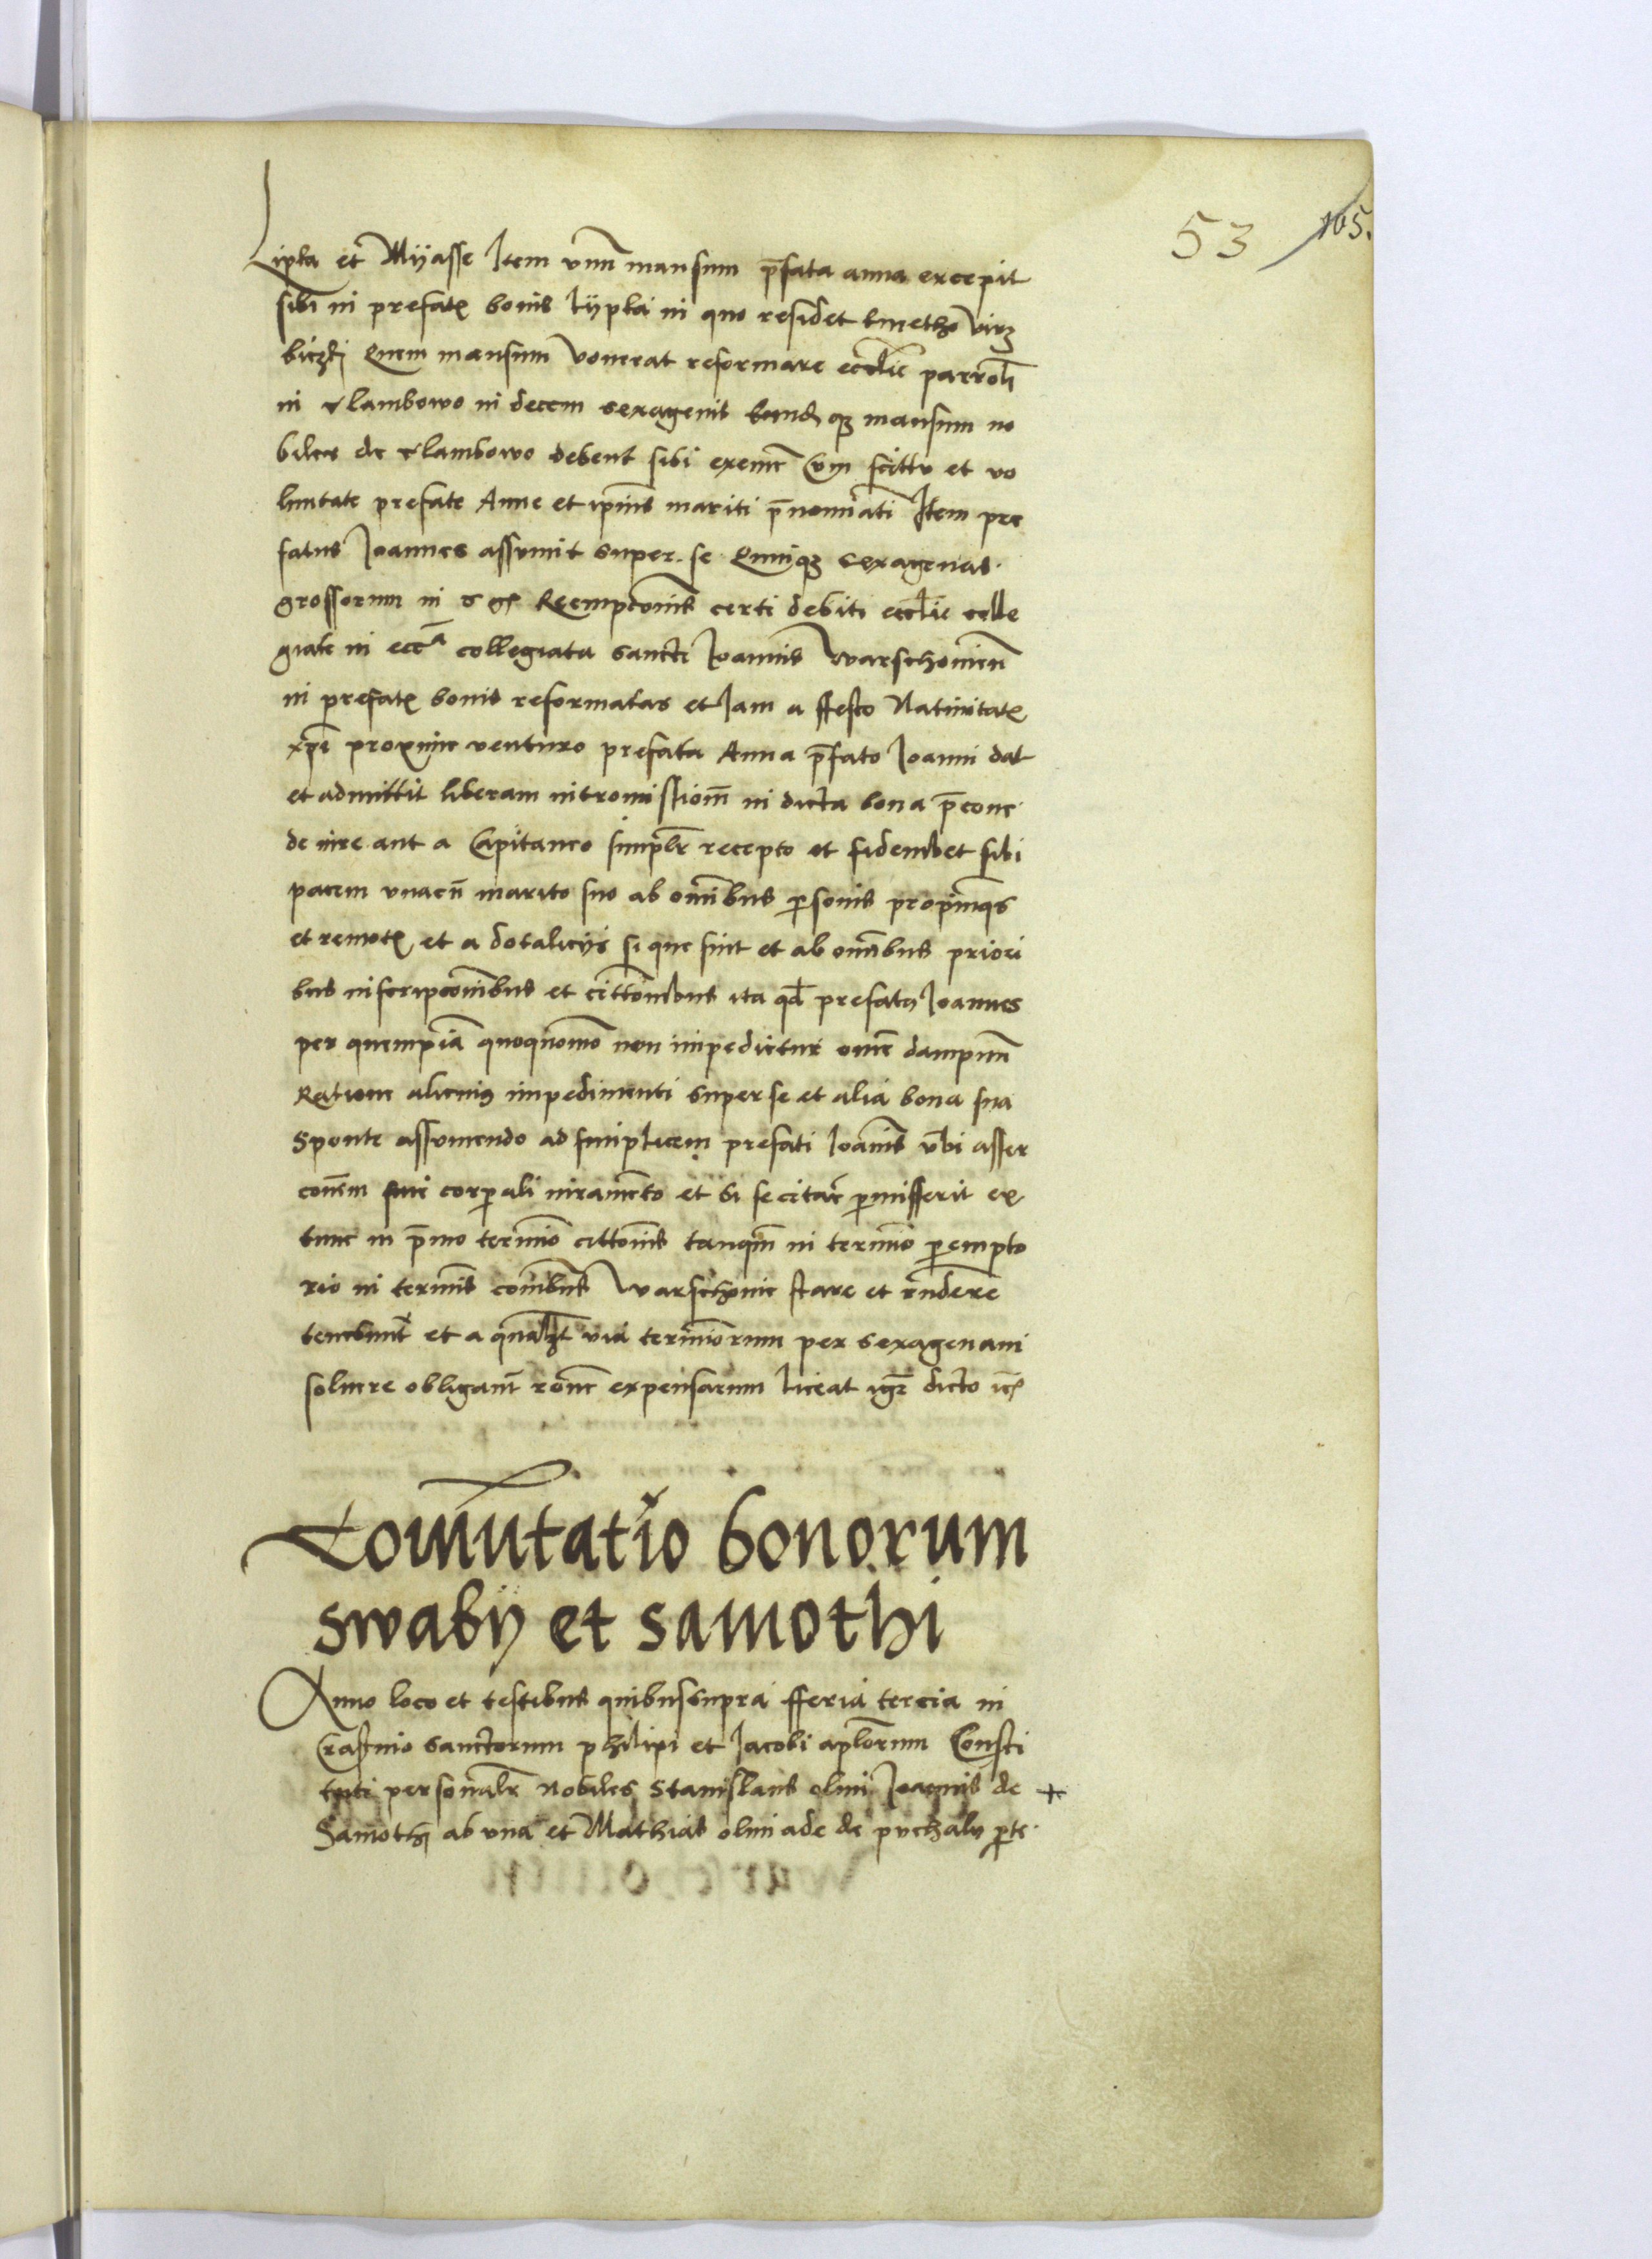 53 105.
Lipka et Mÿasse Item vnū mansum p̄fata anna excepit
sibi in prefat̄ bonis lÿpka in quo residet kmetho virz
biczki Quem mansum vouerat reformare eccl̄ie parroch̄
in Clambowo in decem sexagenis Eundq̄ mansum no
biles de Clambowo debent sibi exemē Cum scitu et vo
luntate prefate Anne et ip̄ius mariti p̄nominati Item pre
fatus Joannes assumit super se Quinq̄ sexagenas
grossorum in Reempcōnis certi debiti eccl̄ie colle
giate in ecc̄a collegiata sancti Joannis Warschouien̄
in prefat̄ bonis reformatas et Jam a ffesto Natiuitat̄
xp̄i proxime venturo prefata Anna p̄fato Joanni dat
et admittit liberam intromissionē in dicta bona p̄ eone
de iure aut a Capitaneo simpl̄r recepto et fideiubet sibi
pacem vnacū marito suo ab om̄ibus p̱sonis propinqs
et remot̄ et a dotalicÿs si que sint et ab om̄ibus priori
bus inscripcōnibus et cittōnibus ita qd̄ prefatus Joannes
per quempiā quoquomō non impedietur om̄e dampnū
Ratione alicuius impedimenti super se et alia bona sua
sponte assumendo ad simplicem prefati Joannis v̄bi asser
cōnem sine corporali iuramēto et Si se citarē p̱misserit ex
tunc in p̄mo termīo cittōnis tanq̄m in termīo p̱empto
rio in termīs cōnibus Warschouie stare et rn̄dere
tenebunt̄ et a qualz̄t via terminorum per sexagenam
soluere obligant̄ rōne expensarum liceat igr̄ dicto
Com̄utatio bonorum
swabÿ et samothi
Anno loco et testibus quibussupra fferia tercia in
Crastino sanctorum philipi et Jacobi apl̄orum Consti
tuti personalr̄ Nobiles Stanislaus olim Joannis de +
Samothÿ ab vna et Mathias olim ade de puchaly p̱te